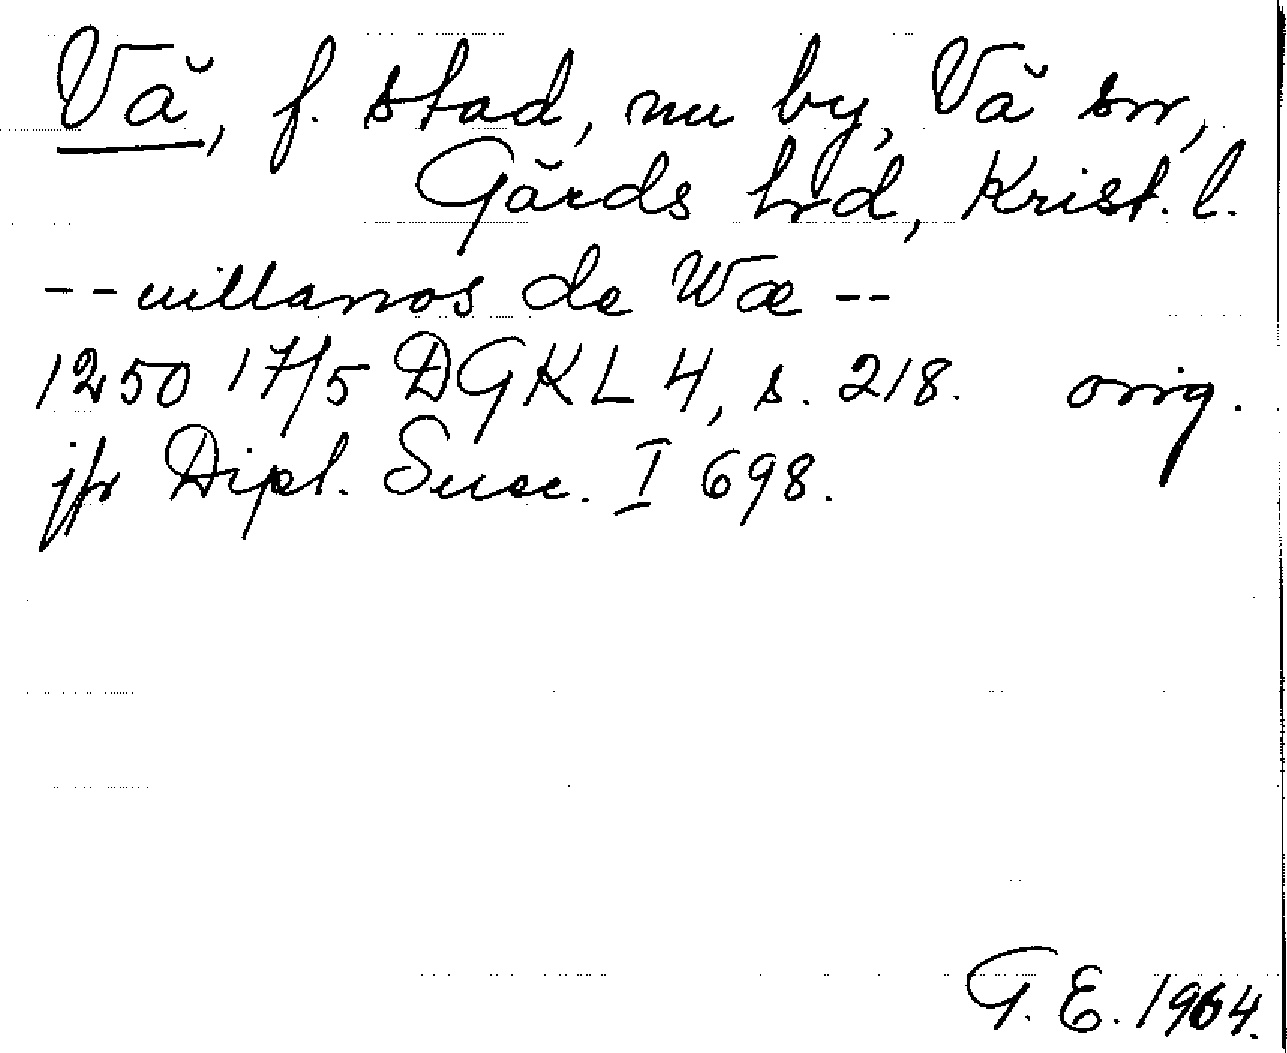 Vä, f. stad, nu by, Vä sn,
Gärds hd, Krist. l.
-- uillanos de Wæ --
1250 17/5 DGKL 4, s. 218. orig.
jfr Dipl. Suec. I 698.
G. E. 1964.